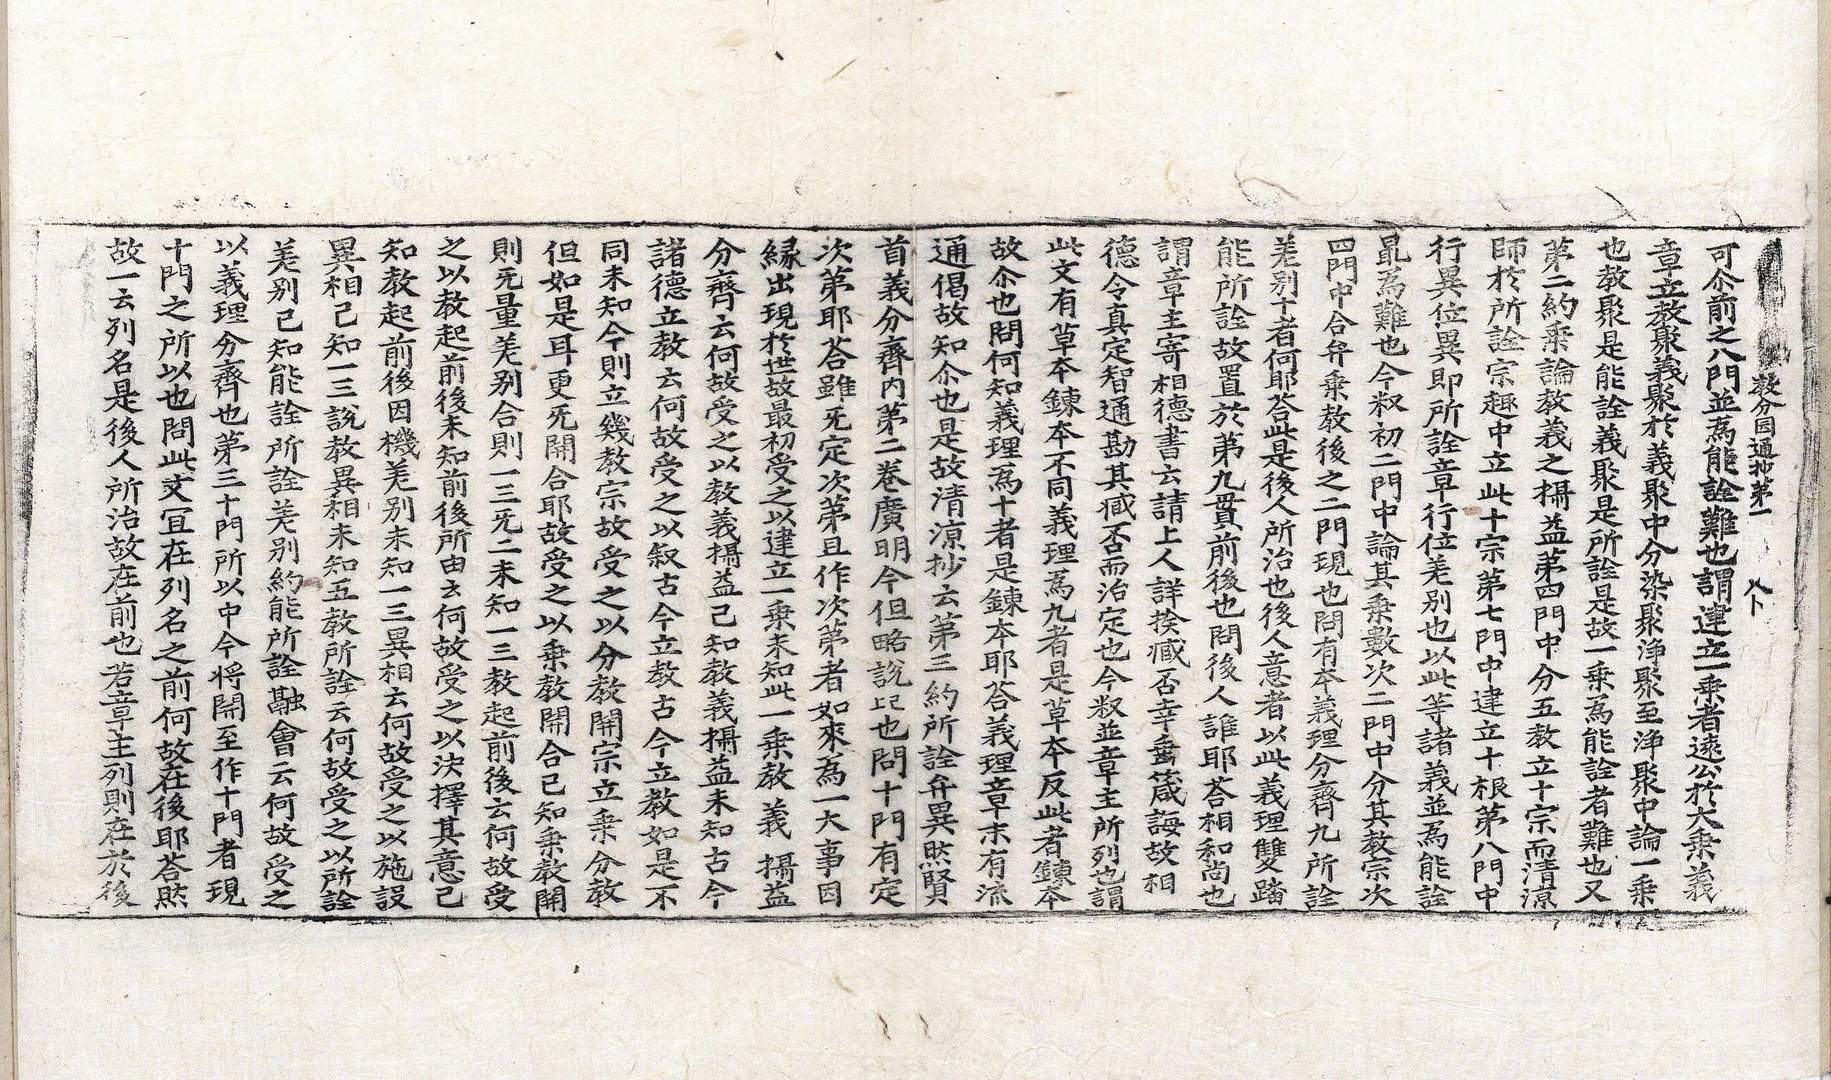 教分円通抄第一 八卜
可尒前之八門並爲能詮難也謂建立一乘者遠公於大乘義
章立教聚義聚於義聚中分染聚淨聚至淨聚中論一乘
也教聚是能詮義聚是所詮是故一乘爲能詮者難也又
第二約乘論教義之攝益第四門中分五教立十宗而清涼
師於所詮宗趣中立此十宗第七門中建立十根第八門中
行異位異即所詮章行位差別也以此等諸義並爲能詮
最爲難也今叙初二門中論其乘數次二門中分其教宗次
四門中合弁乘教後之二門現也問有本義理分齊九所詮
差別十者何耶荅此是後人所治也後人意者以此義理雙踏
能所詮故置於第九貫前後也問後人誰耶荅相和尚也
謂章主寄相德書云請上人詳撿臧否幸垂箴誨故相
德令真定智通勘其臧否而治定也今叙並章主所列也謂
此文有草本鍊本不同義理爲九者是草本反此者鍊本
故尒也問何知義理爲十者是鍊本耶荅義理章末有流
通偈故知尒也是故清凉抄云第三約所詮弁異然賢
首義分齊内第二卷廣明今但略說上已也問十門有定
次第耶荅雖旡定次第且作次第者如來爲一大事因
緣出現於世故最初受之以建立一乘未知此一乘教義攝益
分齊云何故受之以教義攝益已知教義攝益未知古今
諸德立教云何故受之以叙古今立教古今立教如是不
同未知今則立幾教宗故受之以分教開宗立乘分教
但如是耳更旡開合耶故受之以乘教開合已知乘教開
則旡量差別合則一三旡二未知一三教起前後云何故受
之以教起前後未知前後所由云何故受之以決擇其意已
知教起前後因機差別未知一三異相云何故受之以施設
異相已知一三說教異相未知五教所詮云何故受之以所詮
差別已知能詮所詮差別約能所詮融會云何故受之
以義理分齊也第三十門所以中今將開至作十門者現
十門之所以也問此文宜在列名之前何故在後耶荅然
故一云列名是後人所治故在前也若章主列則在於後